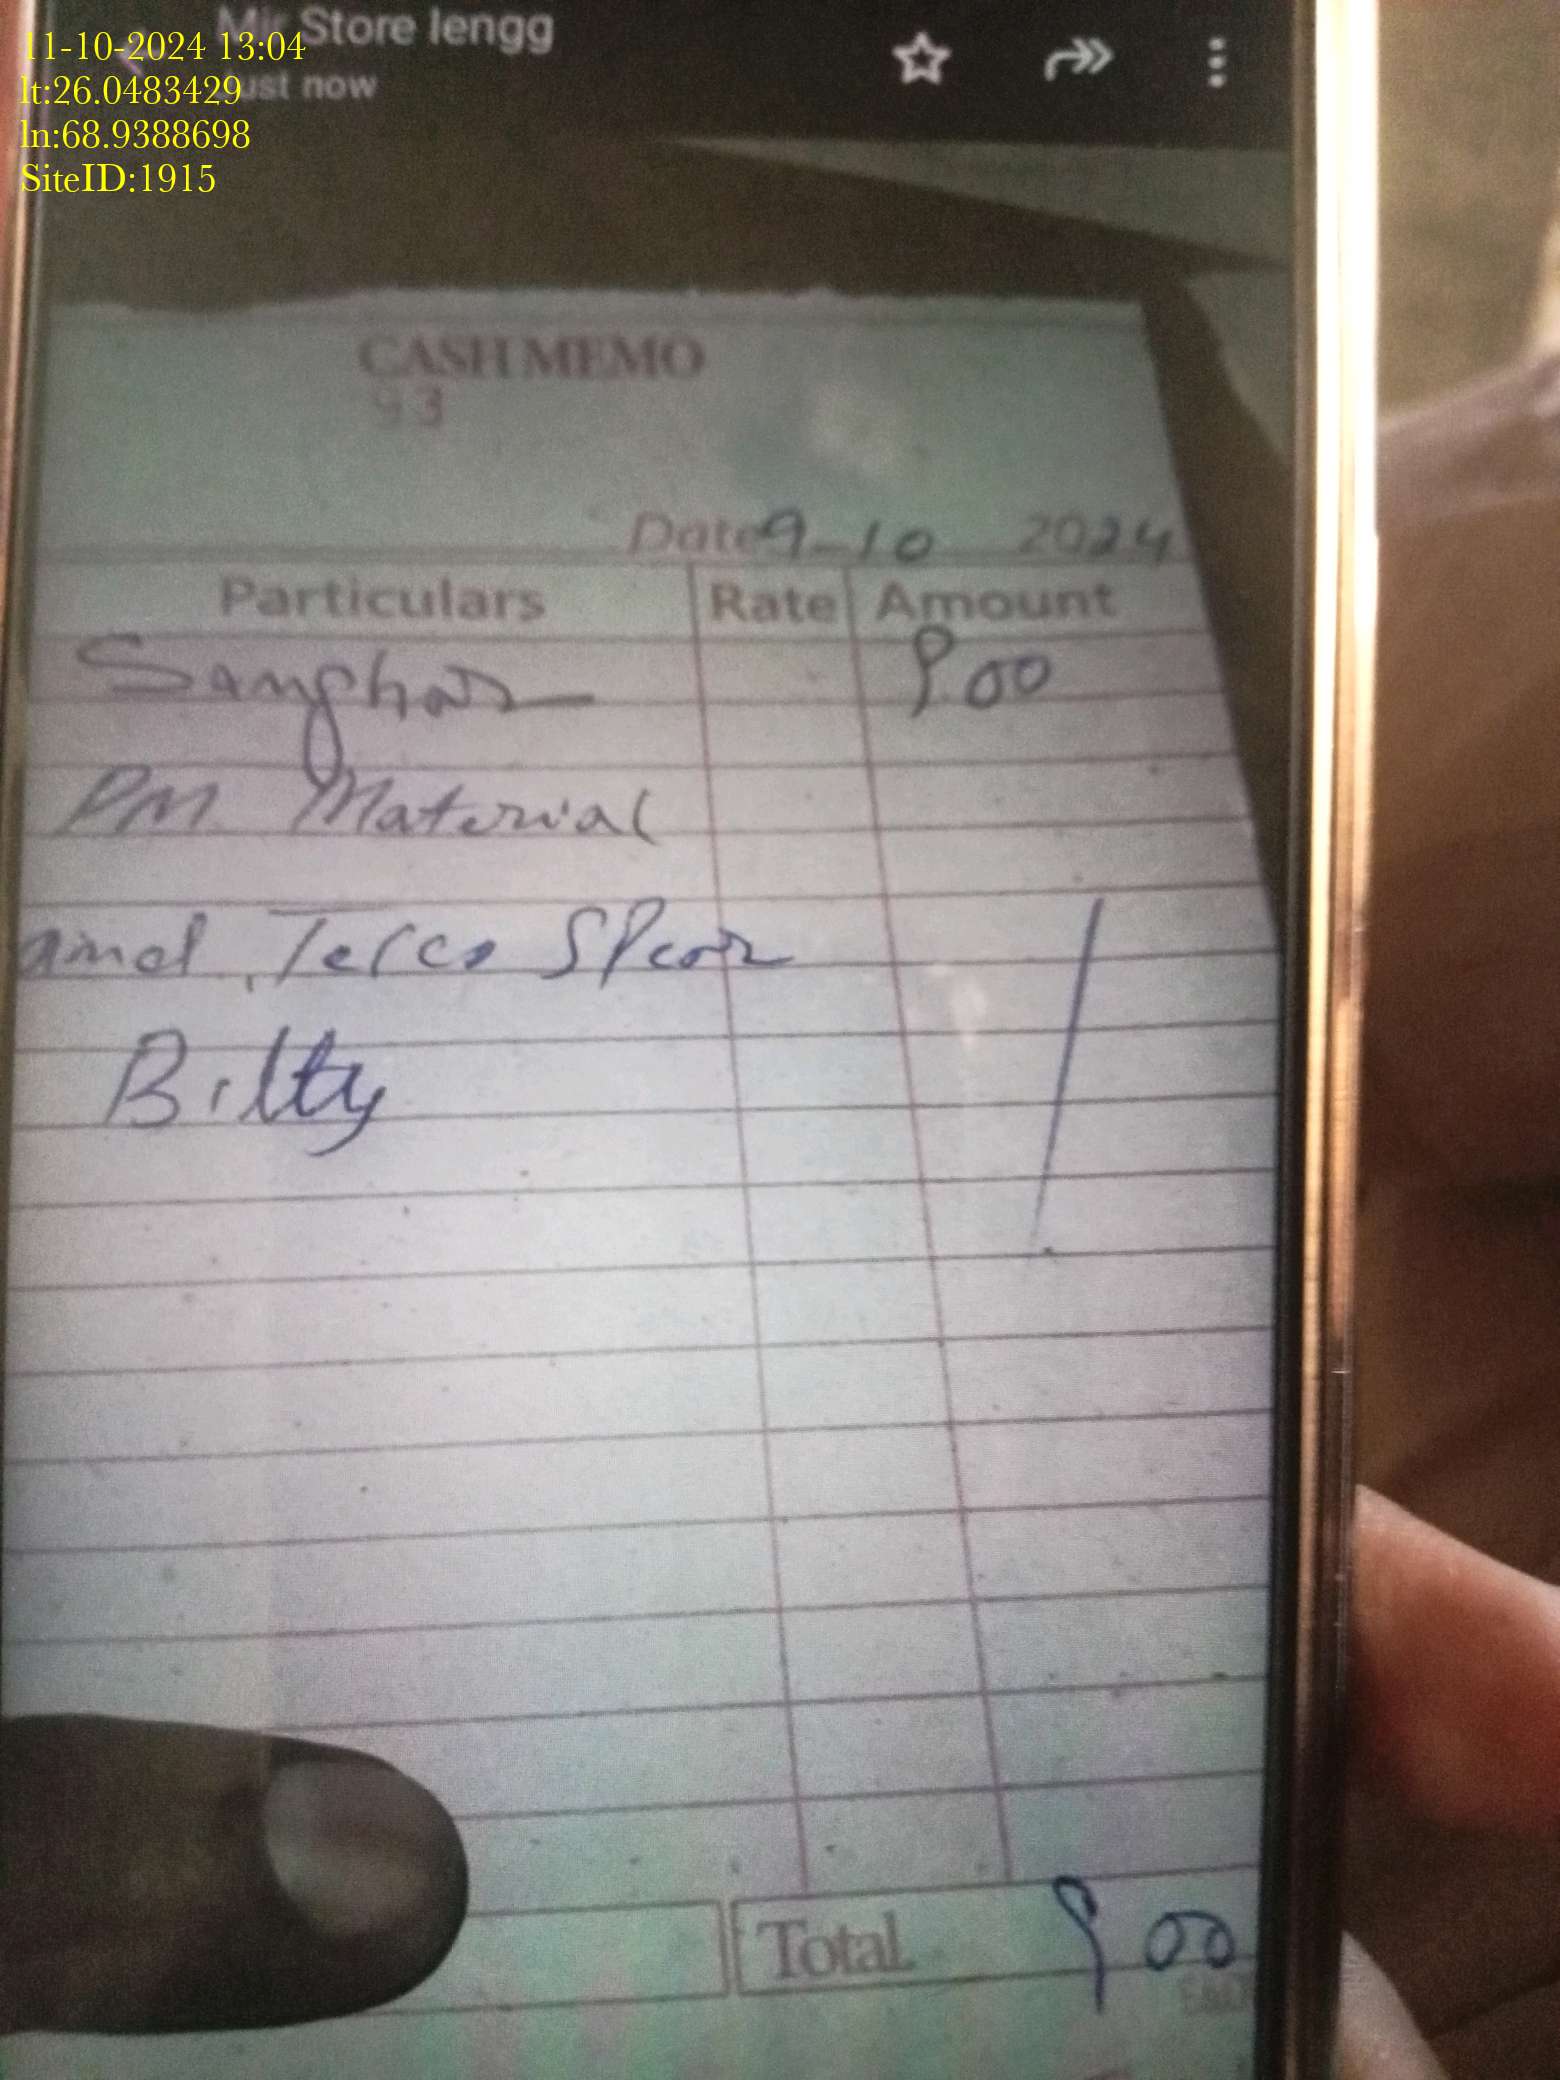 Mir Store Iengg
11-10-2024 13:04
Just now
lt:26.0483429
ln:68.9388698
SiteID:1915
CASH MEMO
93
Date 9-10 2024
Particulars Rate Amount
Sanghar 900
PM Material
and Telco
Bilty
Total 900